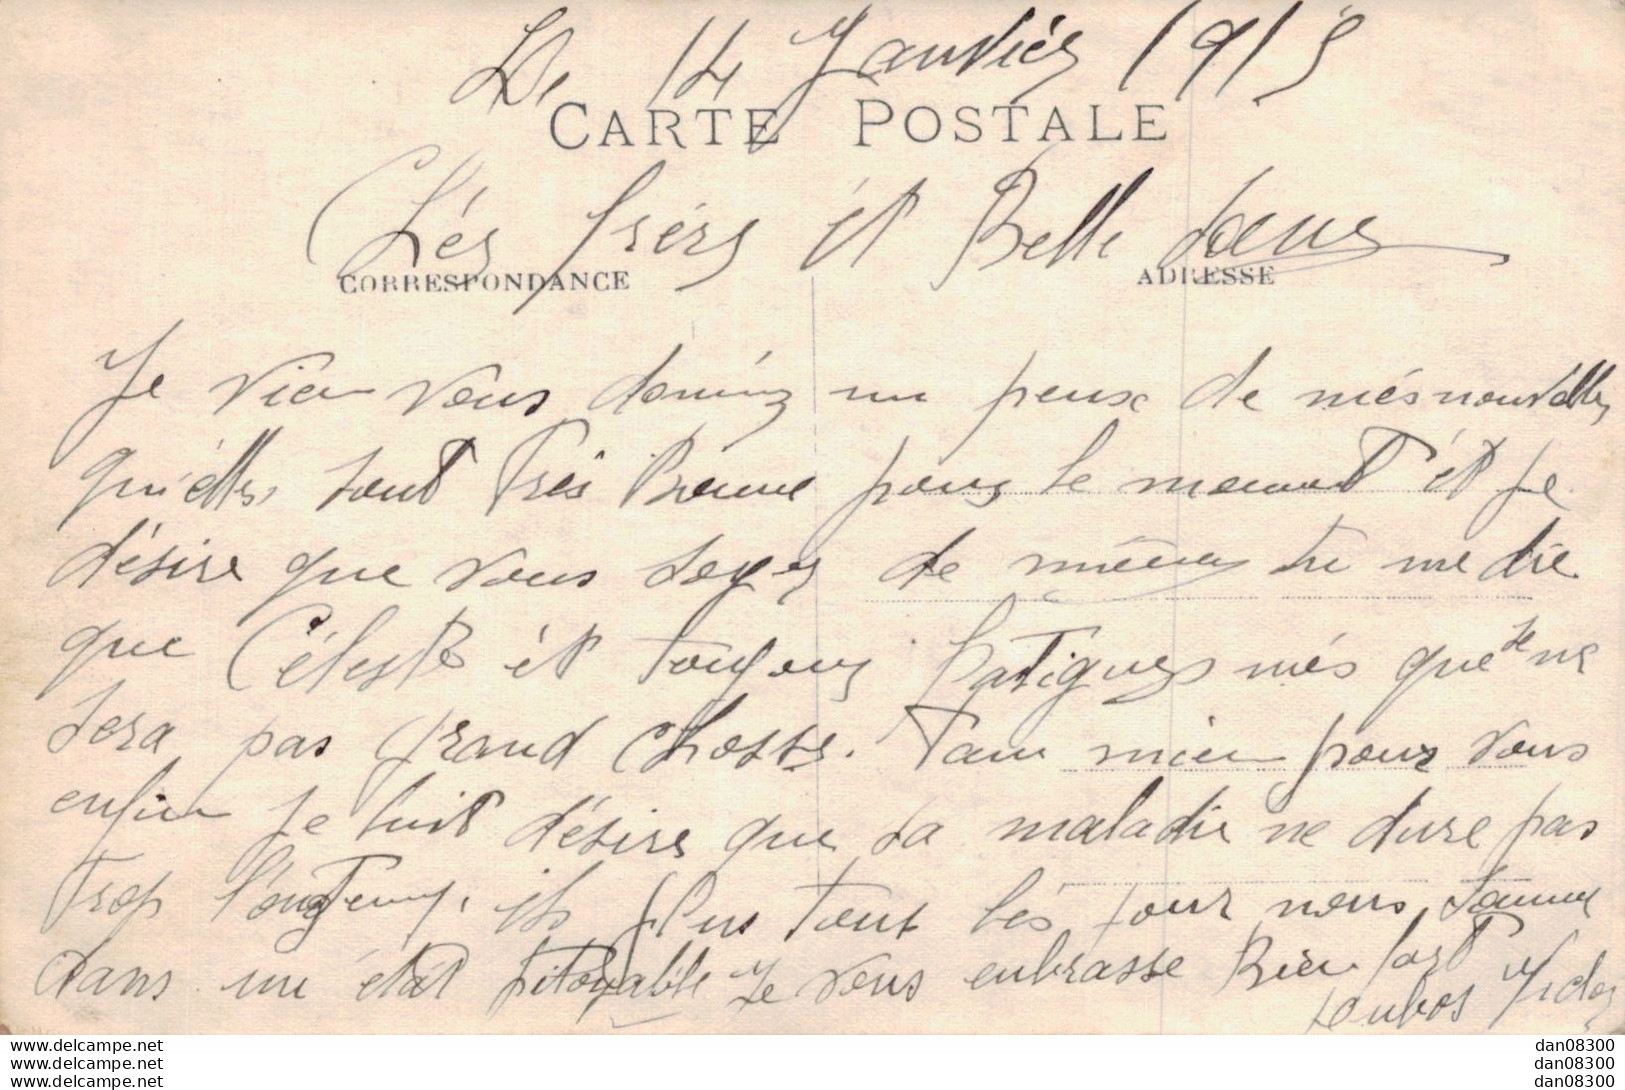 Le 14 Janviér 1915
CARTE POSTALE
Chér frérs ét Belle Soeur
CORRESPONDANCE
ADRESSE
Je vien vous donnéz un peux de més nouvelles
qu'élles sont Trés Bonne pour le moment ét je
désire que vous soyez de même tu me die
que Céleste ét toujour fatiguer més que se ne
sera pas grand chosse. Tant mien pour vous
enfin je luit désire que sa maladie ne dure pas
trop l'ongtemp. ils pleus tout lés jour nous somme
dans un état pitoyable Je vous enbrasse Bien fort
www.delcampe.net
www.delcampe.net
www.delcampe.net
dan08300
dan08300
dan08300